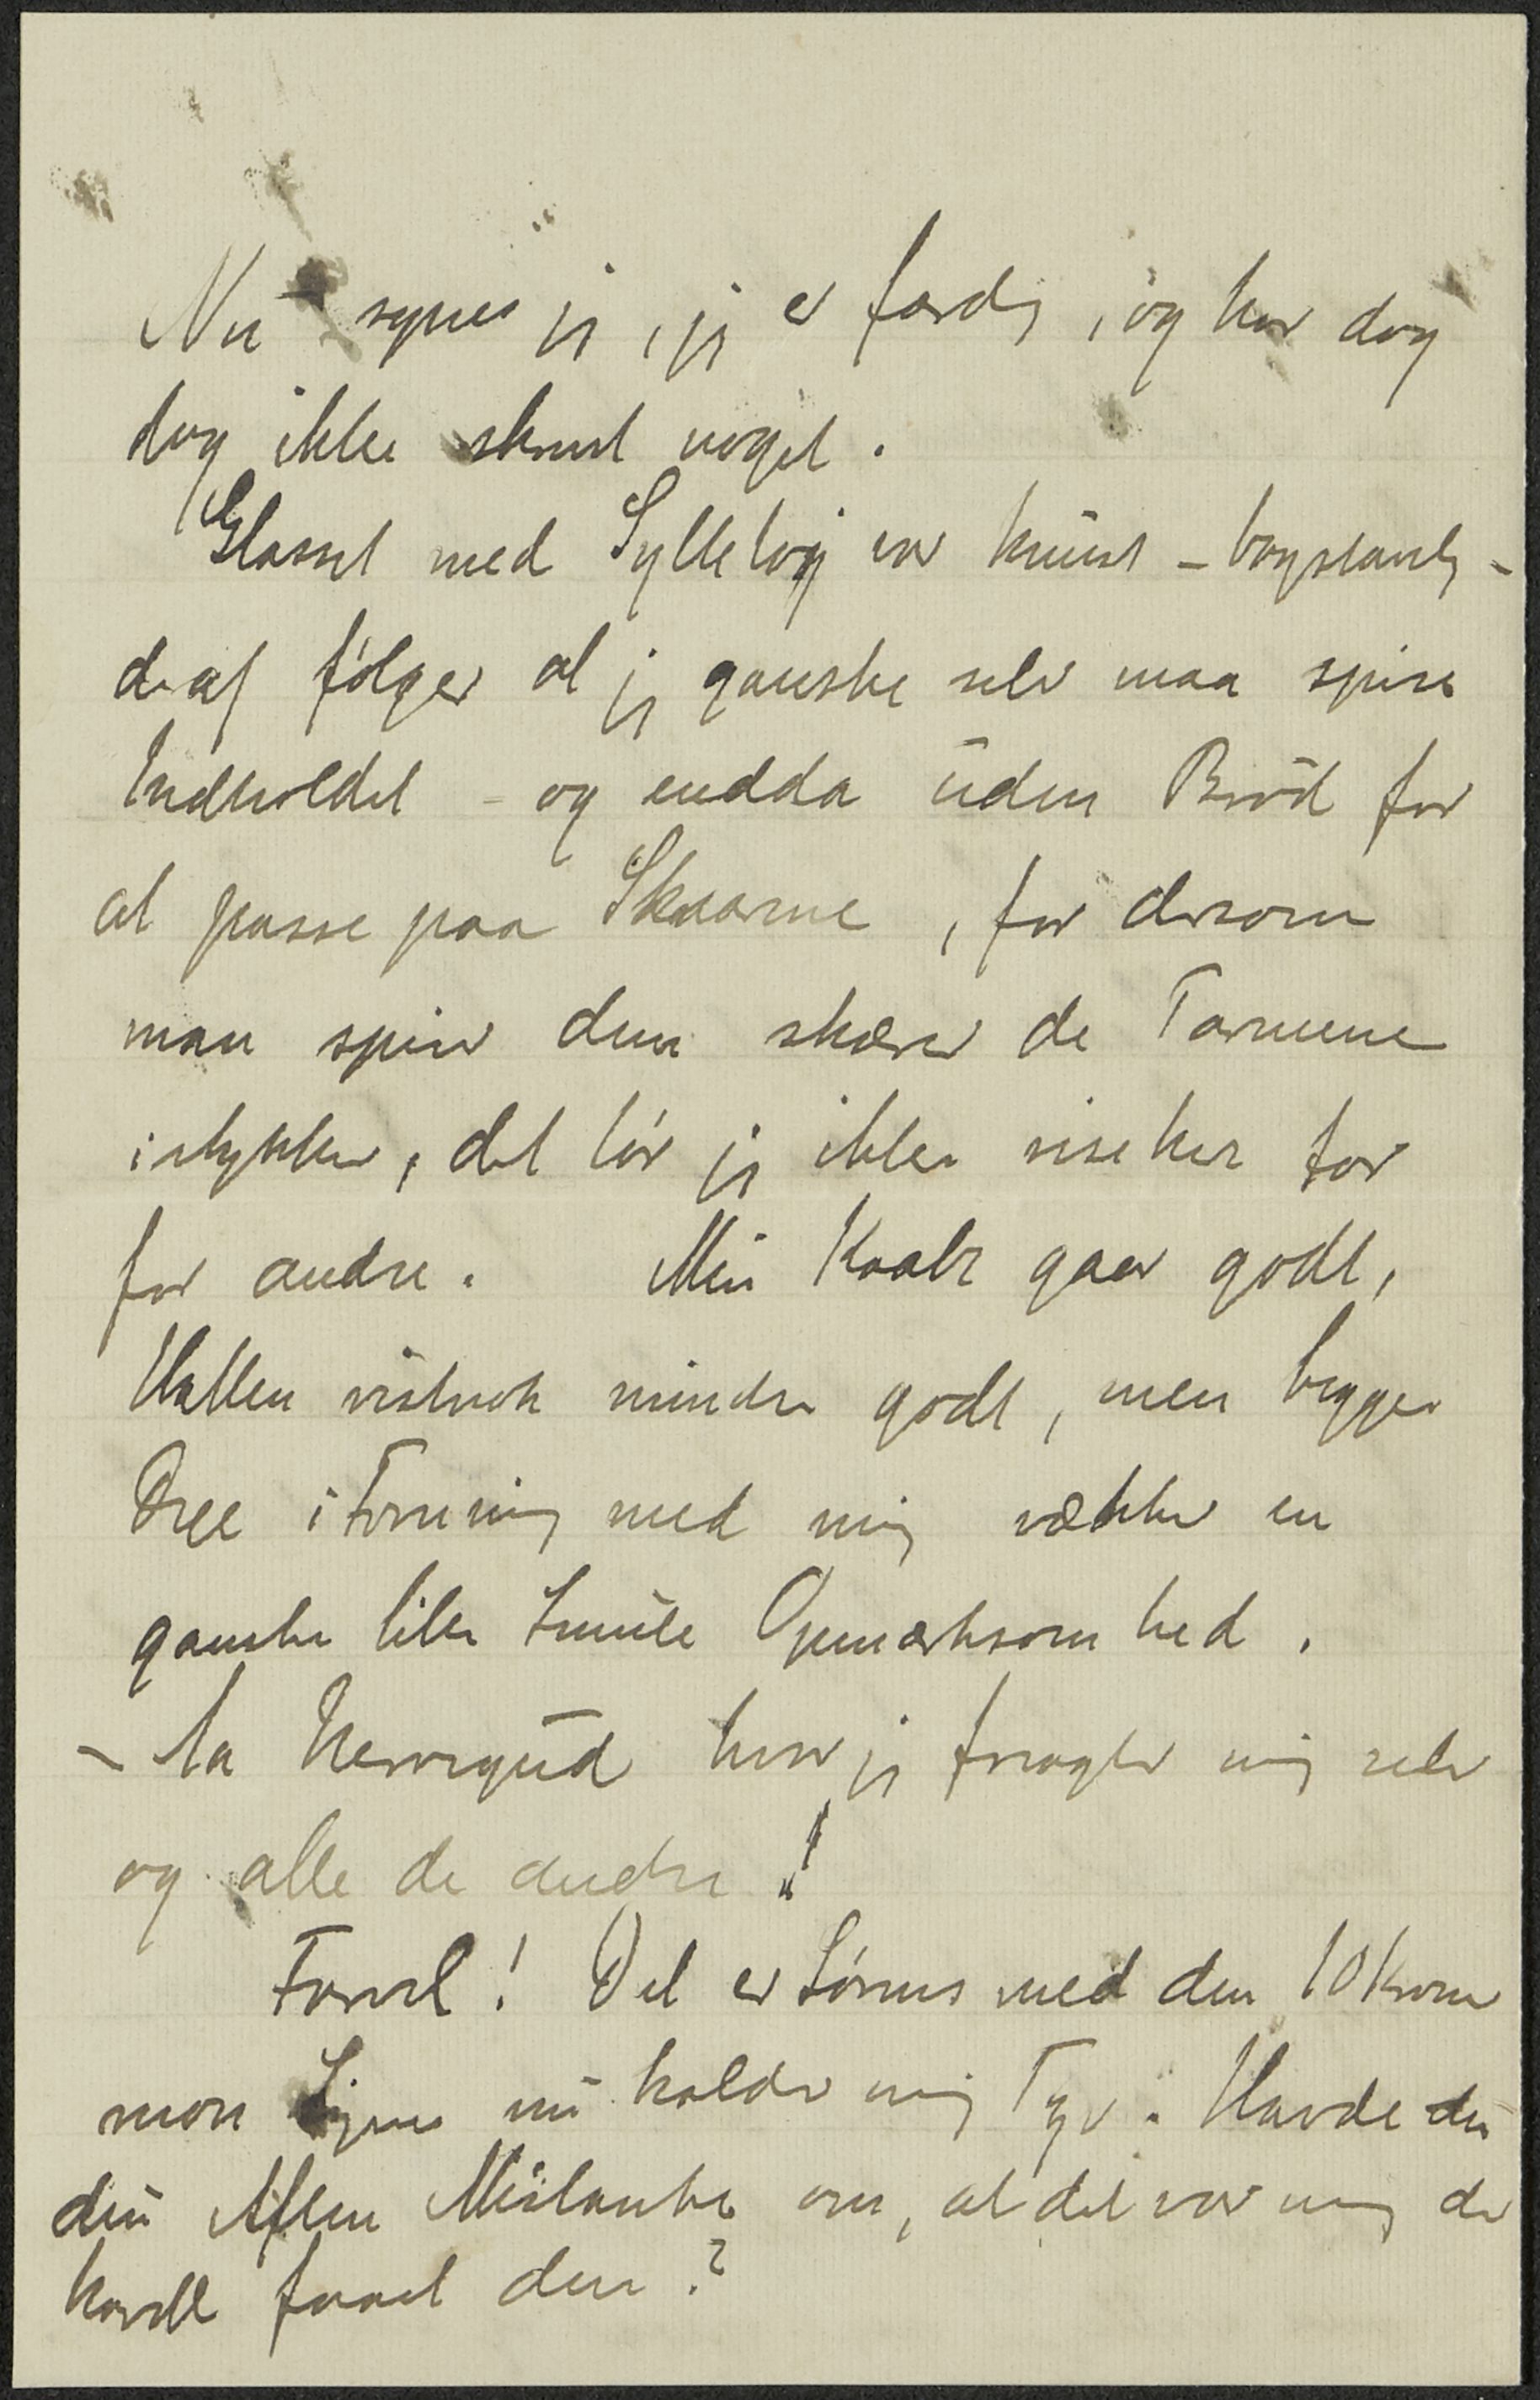 Nu synes jeg, jeg er færdig, og har dog
dog ikke skrevet noget.
Glasset med Sylletøj var knust – bogstavelig –
deraf følger at jeg ganske selv maa spise
Indholdet – og endda uden Brød for
at passe paa Skaarne, for dersom
man spiser dem skærer de Tarmene
istykker, det tør jeg ikke risikere for
for andre. Min Kaabe gaar godt,
Hatten vistnok mindre godt, men begge
Dele i Forening med mig vækker en
ganske lille Smule Opmærksomhed.
– Aa Herregud hvor jeg foragter mig selv
og alle de andre!
Farvel! Det er Sørens med den 10 Krone
mon Signe nu kalder mig Tyv. Havde du
du Aften Mistanke om, at det var mig der
havde faaet den?